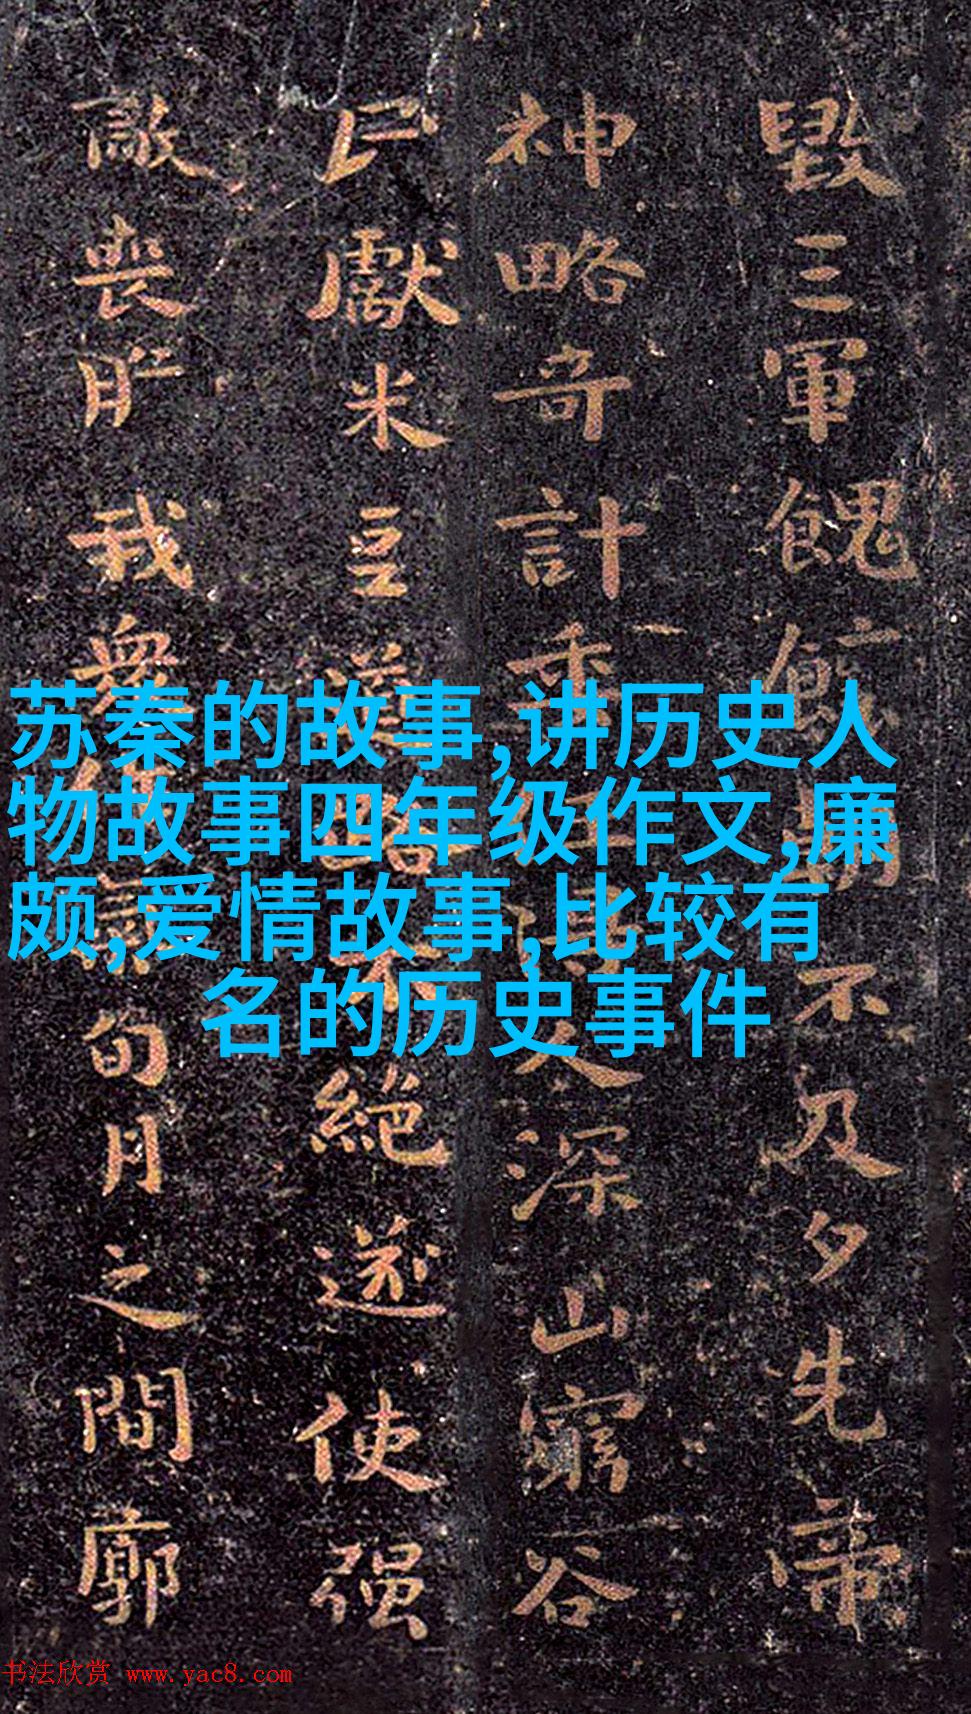 毀三軍餽朝不及夕先帝
神略奇計委任得人深山窮谷
民獻米豆道路不絕遂使强
敵喪我衆作氣旬月之間廓
苏秦的故事,讲历史人
物故事四年级作文,廉
颇,爱情故事,比较有
名的历史事件
书法欣赏 www.yac8.com